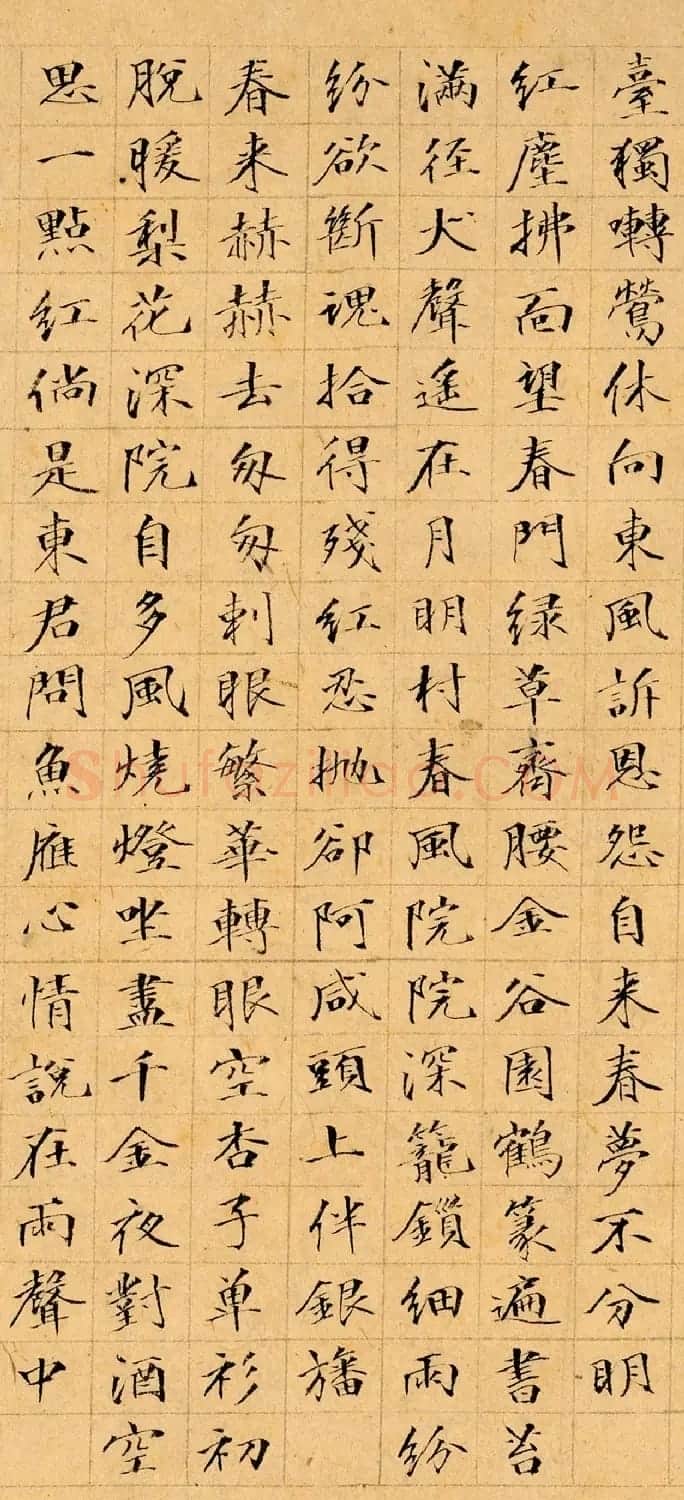 臺獨囀鶯休向東風訴恩怨自来春夢不分明
红塵拂面望春門緑草齊腰金谷園鶴篆遍書苔
满径犬聲遥在月明村春風院院深籠鎖細雨紛
紛欲斷魂拾得殘红忍抛卻阿咸頭上伴銀旛
春来赫赫去匆匆刺眼繁華轉眼空杏子单衫初
脫暖梨花深院自多風燒燈坐盡千金夜對酒空
思一點红倘是東君問魚雁心情說在雨聲中
Shufazidao.COM